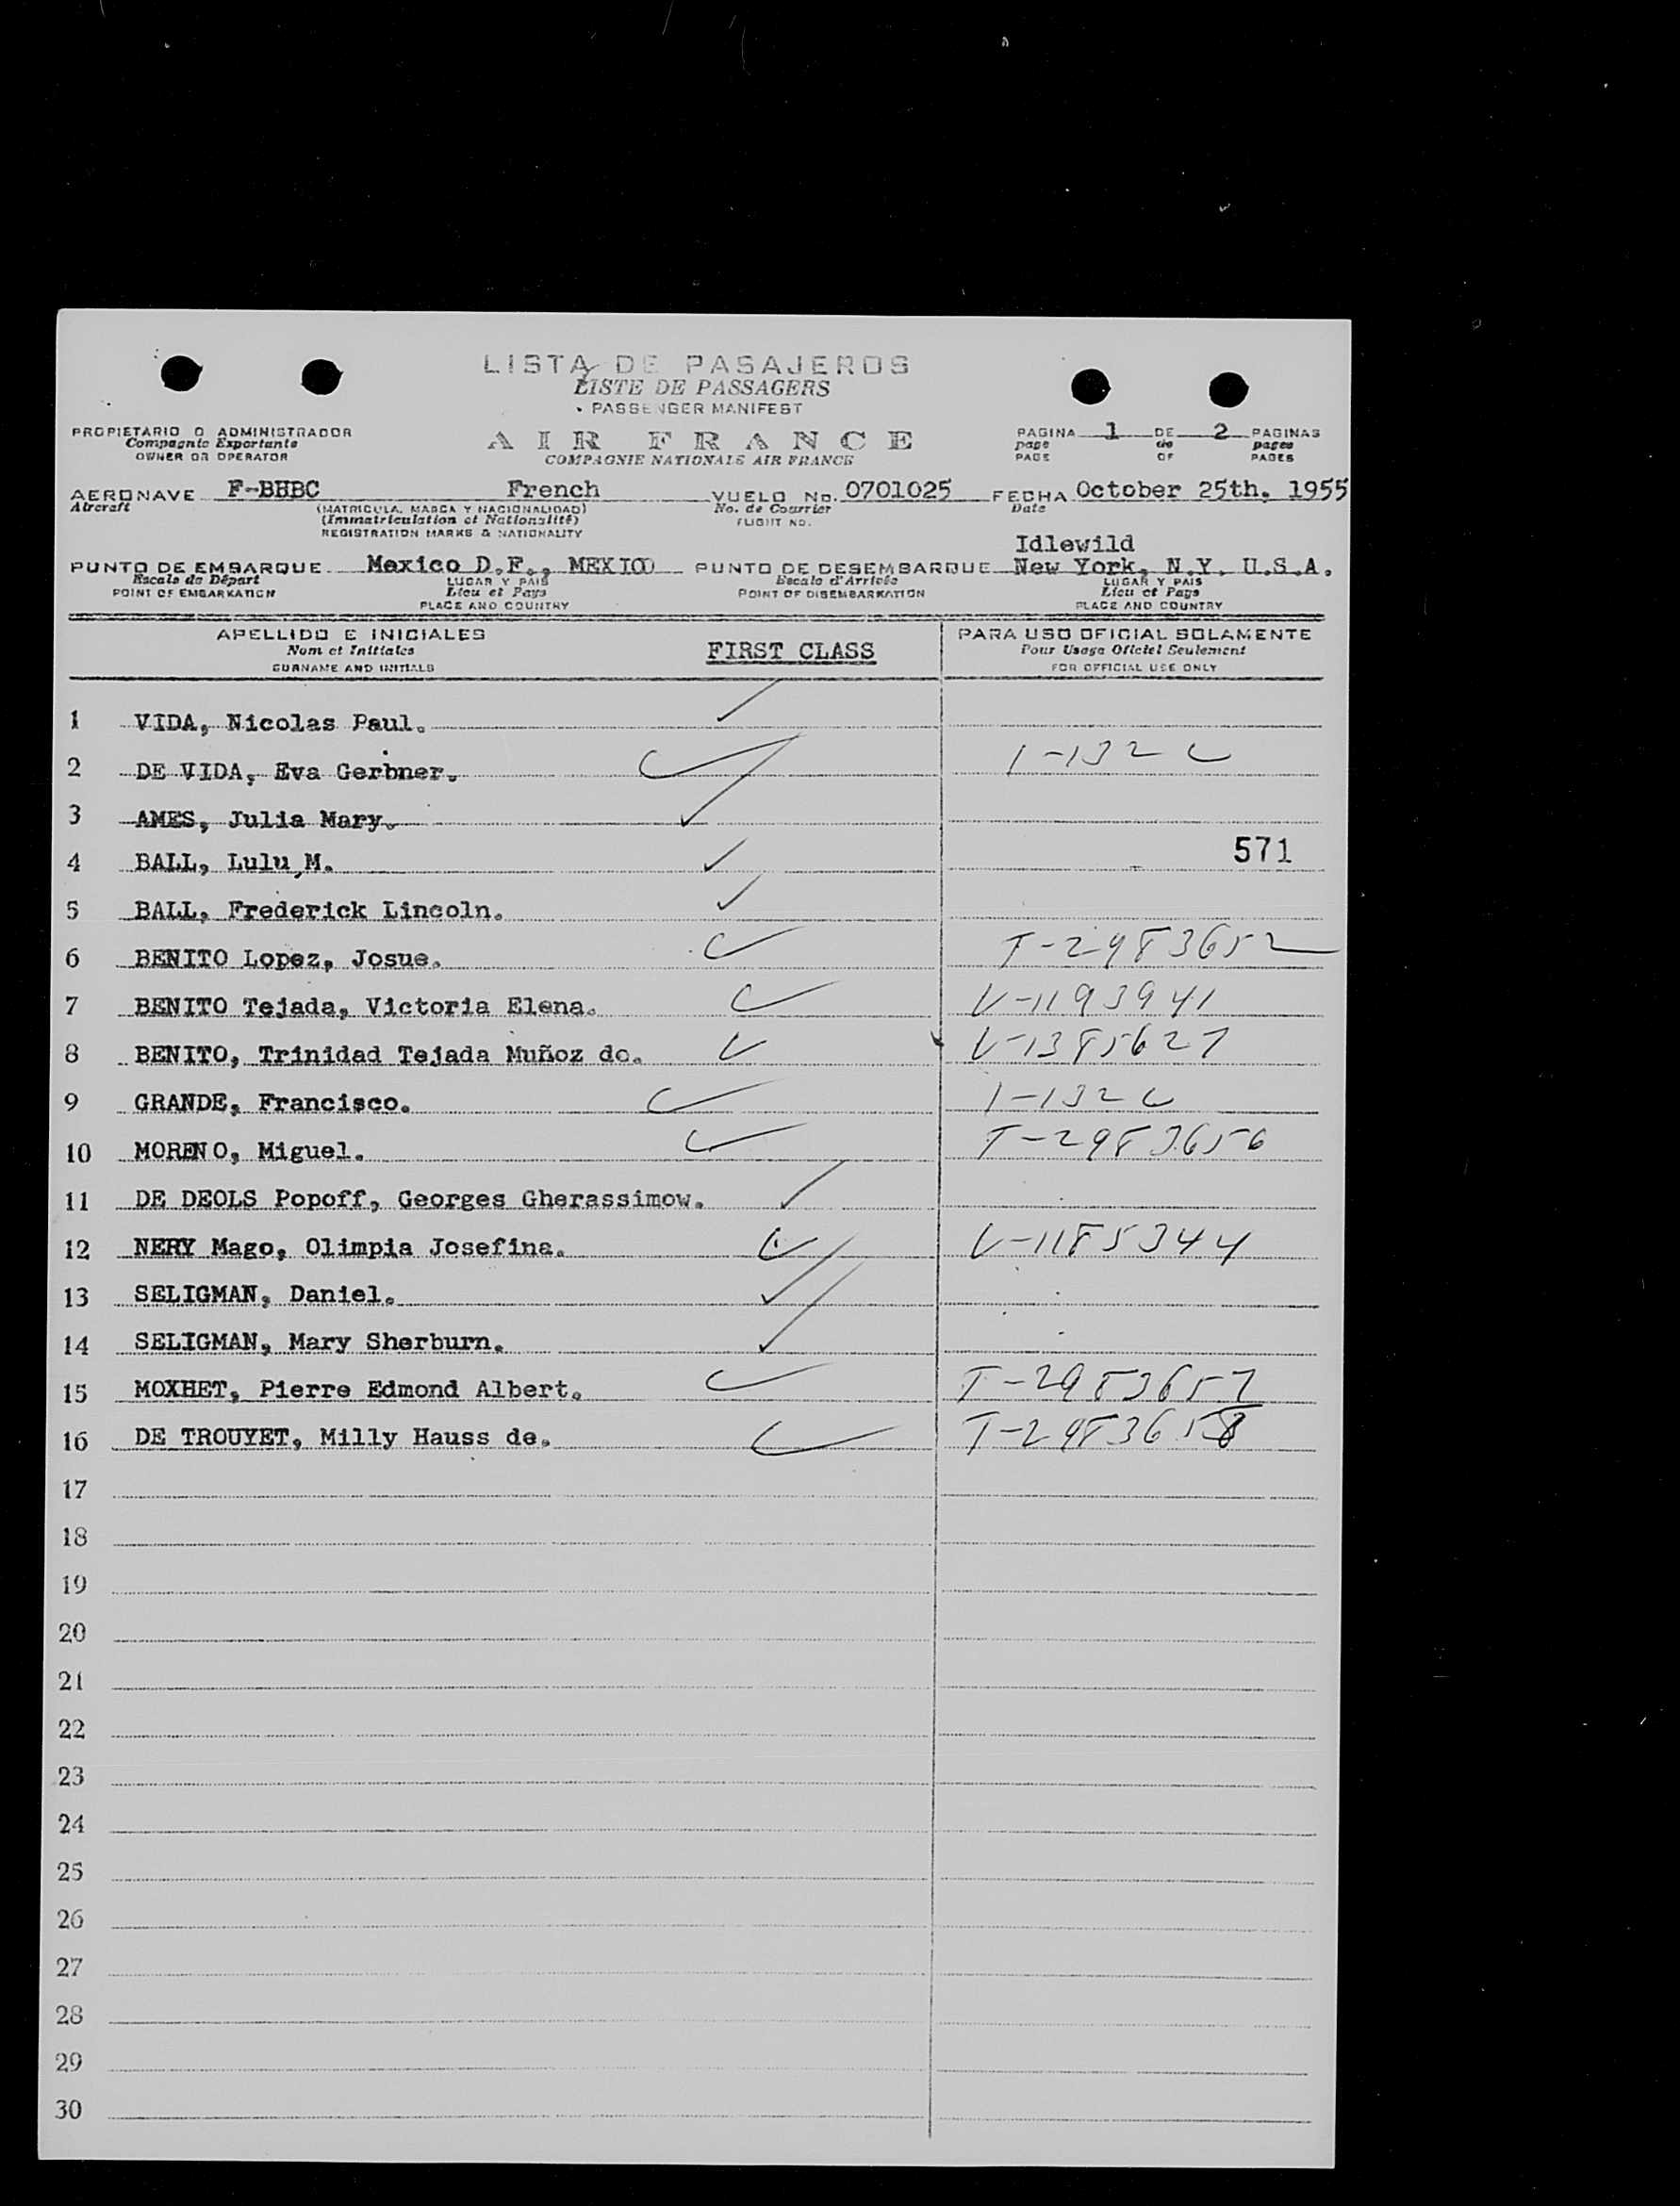 LISTA DE PASAJEROS
LISTE DE PASSAGERS
PASSENGER MANIFEST
PROPIETARIO O ADMINISTRADOR
Compagnie Exportante
OWNER OR OPERATOR
AIR FRANCE
COMPAGNIE NATIONALE AIR FRANCE
PAGINA 1 DE 2 PAGINAS
page de pages
PAGE OF PAGES
AERONAVE F-BHBC French VUELO No. 0701025 FECHA October 25th, 1955
Aircraft (MATRICULA, MARCA Y NACIONALIDAD) No. de Courrier Date
(Immatriculation et Nationalité) FLIGHT NO.
REGISTRATION MARKS & NATIONALITY
Idlewild
PUNTO DE EMBARQUE Mexico D.F., MEXICO PUNTO DE DESEMBARQUE New York, N.Y. U.S.A.
Escale de Départ LUGAR Y PAIS Escale d'Arrivée LUGAR Y PAIS
POINT OF EMBARKATION Lieu et Pays POINT OF DISEMBARKATION Lieu et Pays
PLACE AND COUNTRY PLACE AND COUNTRY
APELLIDO E INICIALES FIRST CLASS PARA USO OFICIAL SOLAMENTE
Nom et Initiales Pour Usage Officiel Seulement
SURNAME AND INITIALS FOR OFFICIAL USE ONLY
1 VIDA, Nicolas Paul.
2 DE VIDA, Eva Gerbner. 1-132 C
3 AMES, Julia Mary.
4 BALL, Lulu M. 571
5 BALL, Frederick Lincoln.
6 BENITO Lopez, Josue. T-2983652
7 BENITO Tejada, Victoria Elena. V-1193941
8 BENITO, Trinidad Tejada Muñoz de. V-1385627
9 GRANDE, Francisco. 1-132 C
10 MORENO, Miguel. T-2983656
11 DE DEOLS Popoff, Georges Gherassimow.
12 NERY Mago, Olimpia Josefina. V-1185344
13 SELIGMAN, Daniel.
14 SELIGMAN, Mary Sherburn.
15 MOXHET, Pierre Edmond Albert. T-2983657
16 DE TROUYET, Milly Hauss de. T-2983658
17
18
19
20
21
22
23
24
25
26
27
28
29
30